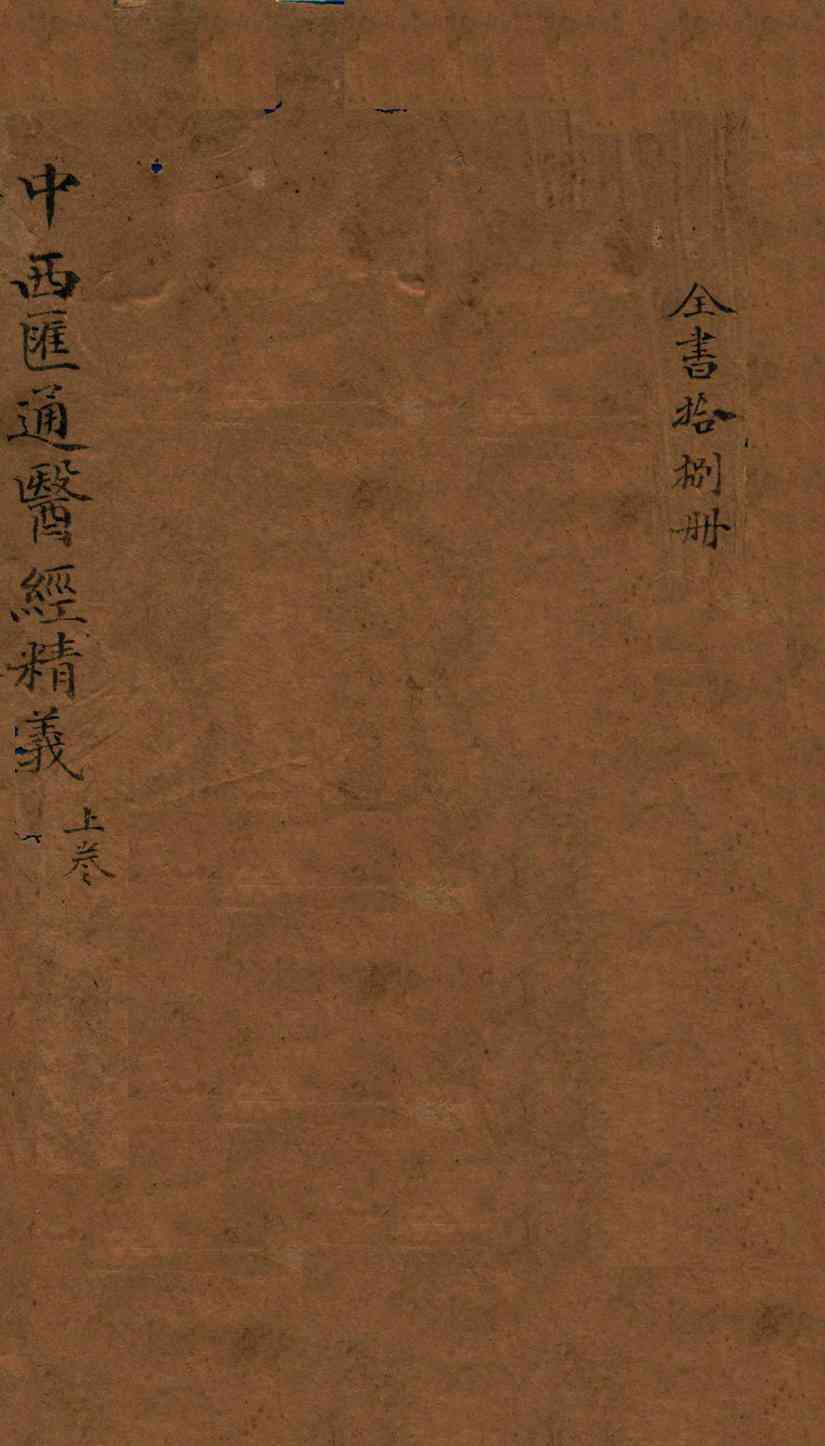 全書拾捌册
中西匯通醫經精義
上卷